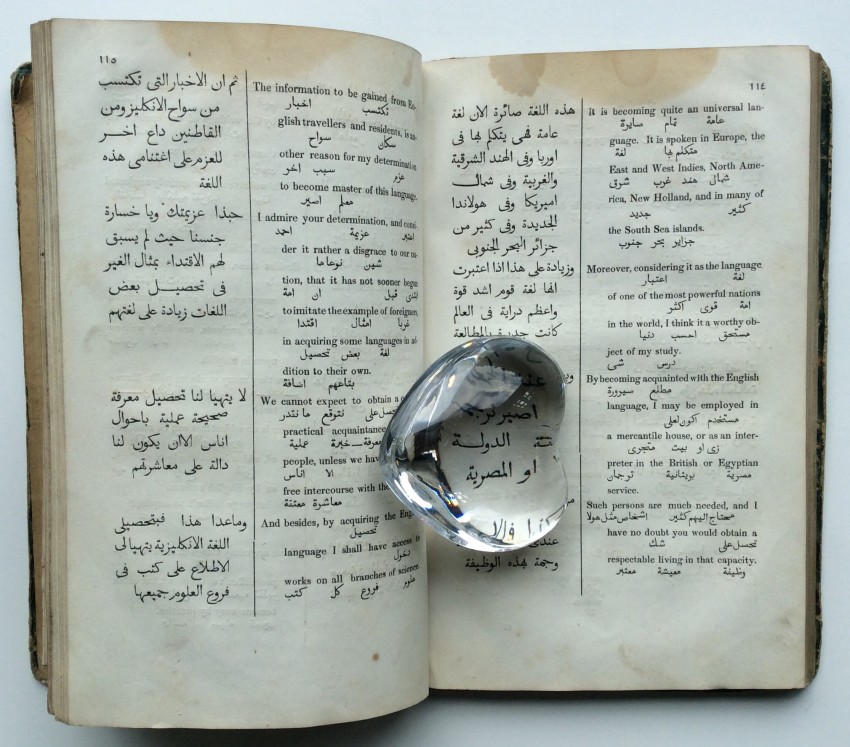 ١١٤
It is becoming quite an universal lan-
عامة تمام سايرة
guage. It is spoken in Europe, the
متكلم بها لغة
East and West Indies, North Ame-
شمال هند غرب شرق
rica, New Holland, and in many of
كثير جديد
the South Sea islands.
جزاير بحر جنوب
Moreover, considering it as the language
لغة اعتبار
of one of the most powerful nations
امة قوى اكثر
in the world, I think it a worthy ob-
مستحق احسب دنيا
ject of my study.
درس شى
By becoming acquainted with the English
مطلع سيرورة
language, I may be employed in
مستخدم اكون لعلى
a mercantile house, or as an inter-
زى او بيت متجرى
preter in the British or Egyptian
مصرية بريتانية ترجمان
service.
Such persons are much needed, and I
محتاج اليهم كثير اشخاص مثل هولا
have no doubt you would obtain a
تحصل على شك
respectable living in that capacity.
وظيفة معيشة معتبر
هذه اللغة صائرة الان لغة
عامة فهى يتكلم بها فى
اوربا وفى الهند الشرقية
والغربية وفى شمال
اميريكا وفى هولاندا
الجديدة وفى كثير من
جزائر البحر الجنوبى
وزيادة على هذا اذا اعتبرت
انها لغة قوم اشد قوة
واعظم دراية فى العالم
كانت جديرة بالمطالعة
اصير ترجمان
الدولة
او المصرية
عندى
وجمة بهذه الوظيفة
١١٥
The information to be gained from En-
تكتسب اخبار
glish travellers and residents, is an-
سكان سواح
other reason for my determination
عزم سبب اخر
to become master of this language.
معلم اصير
I admire your determination, and consi-
اعتبر عزيمة احمد
der it rather a disgrace to our na-
شين نوعا ما
tion, that it has not sooner begun
ابتدى قبل ان امة
to imitate the example of foreigners,
غربا امثال اقتدا
in acquiring some languages in ad-
لغة بعض تحصيل
dition to their own.
بتاعهم اضافة
We cannot expect to obtain a
تحصل على نتوقع ما نقدر
practical acquaintance
معرفة ــ خبرة عملية
people, unless we have
الا اناس
free intercourse with
معاشرة معتقة
And besides, by acquiring the Eng
تحصيل
language I shall have access to
دخول
works on all branches of science
علوم فروع كل كتب
ثم ان الاخبار التى تكتسب
من سواح الانكليز ومن
القاطنين داع اخر
للعزم على اغتنامى هذه
اللغة
حبذا عزيمتك ويا خسارة
جنسنا حيث لم يسبق
لهم الاقتداء بمثال الغير
فى تحصيل بعض
اللغات زيادة على لغتهم
لا يتهيا لنا تحصيل معرفة
صحيحة عملية باحوال
اناس الا ان يكون لنا
دالة على معاشرتهم
وماعدا هذا فبتحصيلى
اللغة الانكليزية يتهيا لى
الاطلاع على كتب فى
فروع العلوم جميعها